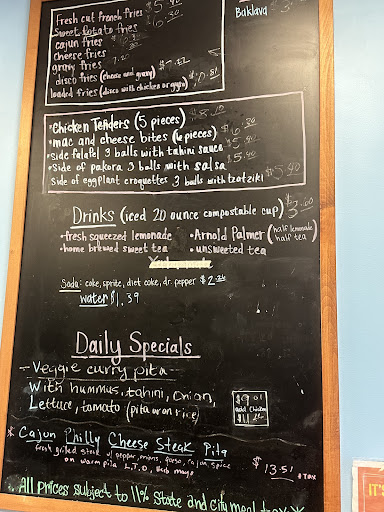 Fresh cut french fries
Baklava
Sweet Potato fries
cajun fries
cheese fries
gravy fries
disco fries (cheese and gravy)
loaded fries (disco with chicken or gyro)
• Chicken Tenders (5 pieces)
• mac and cheese bites (6 pieces)
• Side falafel 3 balls with tahini sauce
• Side of pakora 3 balls with salsa
Side of eggplant croquettes 3 balls with tzatziki
Drinks (iced 20 ounce compostable cup)
• fresh squeezed lemonade • Arnold Palmer (half lemonade half tea)
• home brewed sweet tea • unsweet tea
Soda: coke, sprite, diet coke, dr. pepper
water $1.39
Daily Specials
- Veggie curry pita -
With hummus, tahini, onion,
Lettuce, tomato (pita or on rice)
$9.01
add chicken
* Cajun Philly Cheese Steak Pita
fresh grilled steak w/ pepper, onions, cajun spice
on warm pita L.T.O, herb mayo
$13.51 + tax
All prices subject to 11% state and city meal tax
IT'S